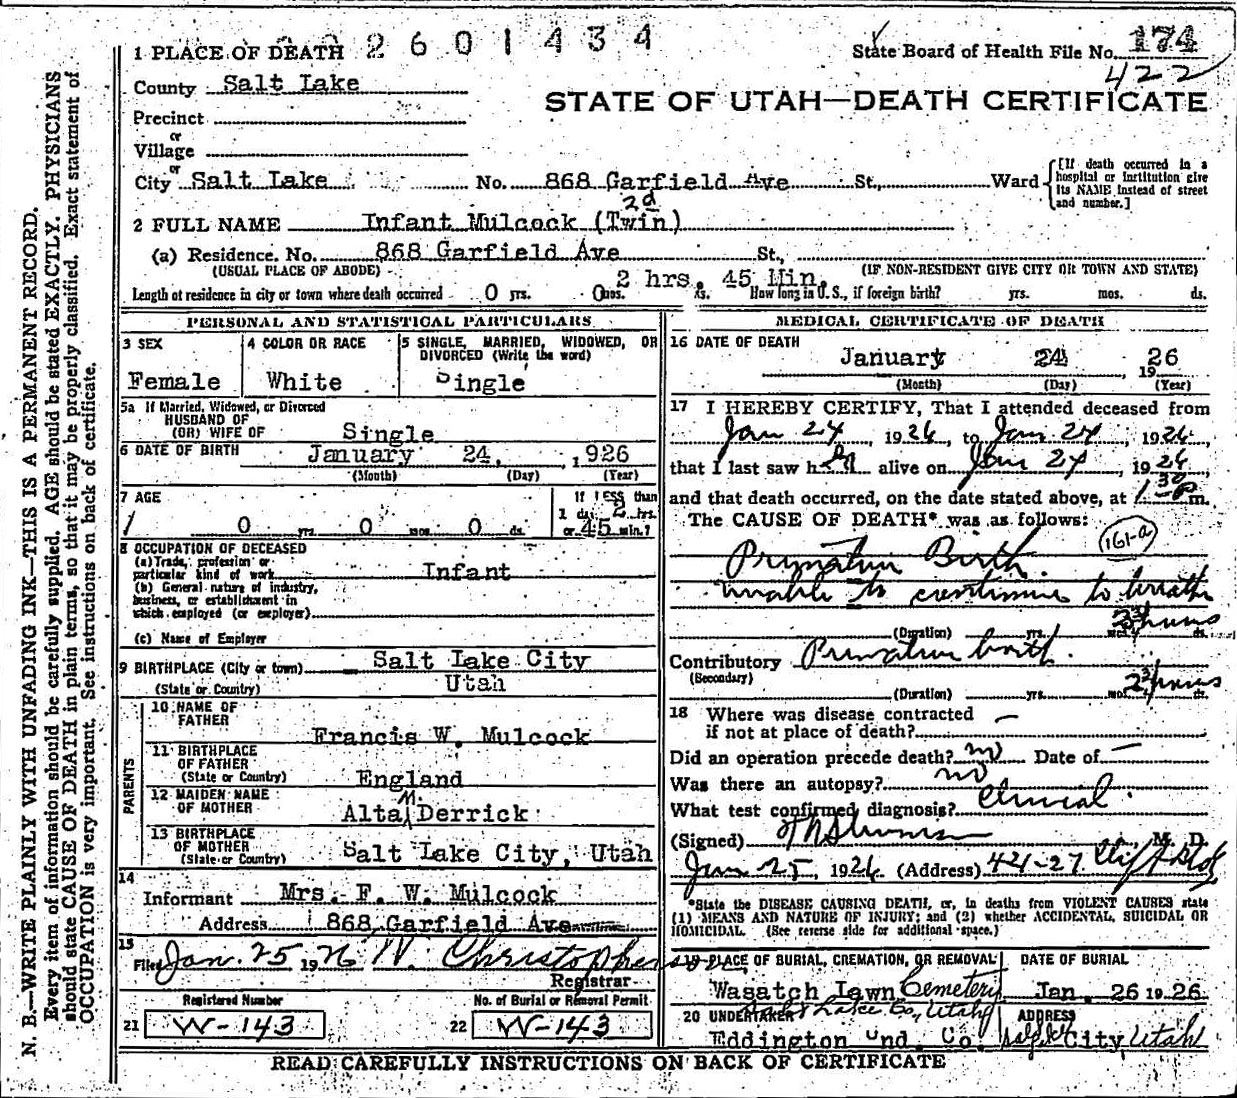 2 6 0 1 4 3 4
1 PLACE OF DEATH
State Board of Health File No. 174
422
County Salt Lake
STATE OF UTAH—DEATH CERTIFICATE
Precinct
or
Village
or
City Salt Lake No. 868 Garfield Ave St., Ward
[If death occurred in a hospital or institution give its NAME instead of street and number.]
2d
2 FULL NAME Infant Mulcock (Twin)
(a) Residence. No. 868 Garfield Ave St.,
(USUAL PLACE OF ABODE) (IF NON-RESIDENT GIVE CITY OR TOWN AND STATE)
2 hrs. 45 Min.
Length of residence in city or town where death occurred 0 yrs. 0 mos. ds. How long in U. S., if foreign birth? yrs. mos. ds.
PERSONAL AND STATISTICAL PARTICULARS
3 SEX
Female
4 COLOR OR RACE
White
5 SINGLE, MARRIED, WIDOWED, OR
DIVORCED (Write the word)
Single
5a If Married, Widowed, or Divorced
HUSBAND OF
(OR) WIFE OF Single
6 DATE OF BIRTH January 24, 1926
(Month) (Day) (Year)
7 AGE
0 yrs. 0 mos. 0 ds.
If LESS than
1 day 2 hrs.
or 45 min.?
8 OCCUPATION OF DECEASED
(a) Trade, profession or
particular kind of work Infant
(b) General nature of industry,
business, or establishment in
which employed (or employer)
(c) Name of Employer
9 BIRTHPLACE (City or town) Salt Lake City
(State or Country) Utah
PARENTS
10 NAME OF
FATHER
Francis W. Mulcock
11 BIRTHPLACE
OF FATHER
(State or Country) England
12 MAIDEN NAME
OF MOTHER Alta M. Derrick
13 BIRTHPLACE
OF MOTHER
(State or Country) Salt Lake City, Utah
14
Informant Mrs. F. W. Mulcock
Address 868 Garfield Ave
15
Filed Jan. 25 1926 W. Christopherson
Registrar
Registered Number
21 W-143
No. of Burial or Removal Permit
22 W-143
MEDICAL CERTIFICATE OF DEATH
16 DATE OF DEATH
January 24 1926
(Month) (Day) (Year)
17 I HEREBY CERTIFY, That I attended deceased from
Jan 24, 1926, to Jan 24, 1926,
that I last saw her alive on Jan 24, 1926,
and that death occurred, on the date stated above, at 1 30 P m.
The CAUSE OF DEATH* was as follows:
161-a
Premature Birth
unable to continue to breath
2 3/4 hours
(Duration) yrs. mos. ds.
Contributory Premature birth.
(Secondary)
2 3/4 hours
(Duration) yrs. mos. ds.
18 Where was disease contracted
if not at place of death? —
Did an operation precede death? no Date of —
Was there an autopsy? no
What test confirmed diagnosis? Clinical
(Signed) M. D.
Jan 25, 1926 (Address) 421-27 Clift Bldg
*State the DISEASE CAUSING DEATH, or, in deaths from VIOLENT CAUSES state
(1) MEANS AND NATURE OF INJURY; and (2) whether ACCIDENTAL, SUICIDAL OR
HOMICIDAL. (See reverse side for additional space.)
19 PLACE OF BURIAL, CREMATION, OR REMOVAL
Wasatch Lawn Cemetery
Salt Lake Co., Utah
DATE OF BURIAL
Jan. 26 1926
20 UNDERTAKER
Eddington Und. Co.
ADDRESS
Salt Lake City, Utah
READ CAREFULLY INSTRUCTIONS ON BACK OF CERTIFICATE
N. B.—WRITE PLAINLY WITH UNFADING INK—THIS IS A PERMANENT RECORD.
Every item of information should be carefully supplied. AGE should be stated EXACTLY. PHYSICIANS
should state CAUSE OF DEATH in plain terms, so that it may be properly classified. Exact statement of
OCCUPATION is very important. See instructions on back of certificate.